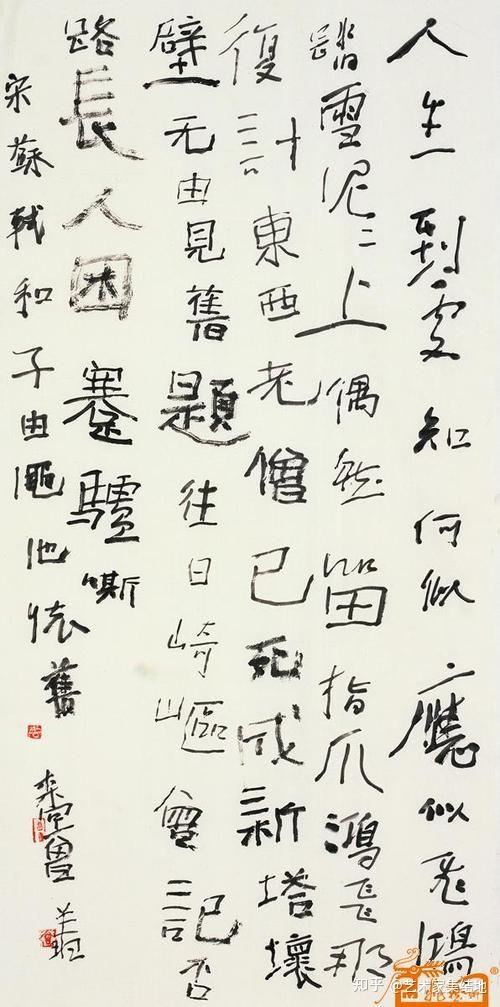 人生到處知何似應似飛鴻
踏雪泥〻上偶然留指爪鴻飛那
復計東西老僧已死成新塔壞
壁无由見舊題往日崎嶇曾記否
路長人困蹇驢嘶
宋蘇軾和子由澠池怀舊
知乎 @艺术家集结地